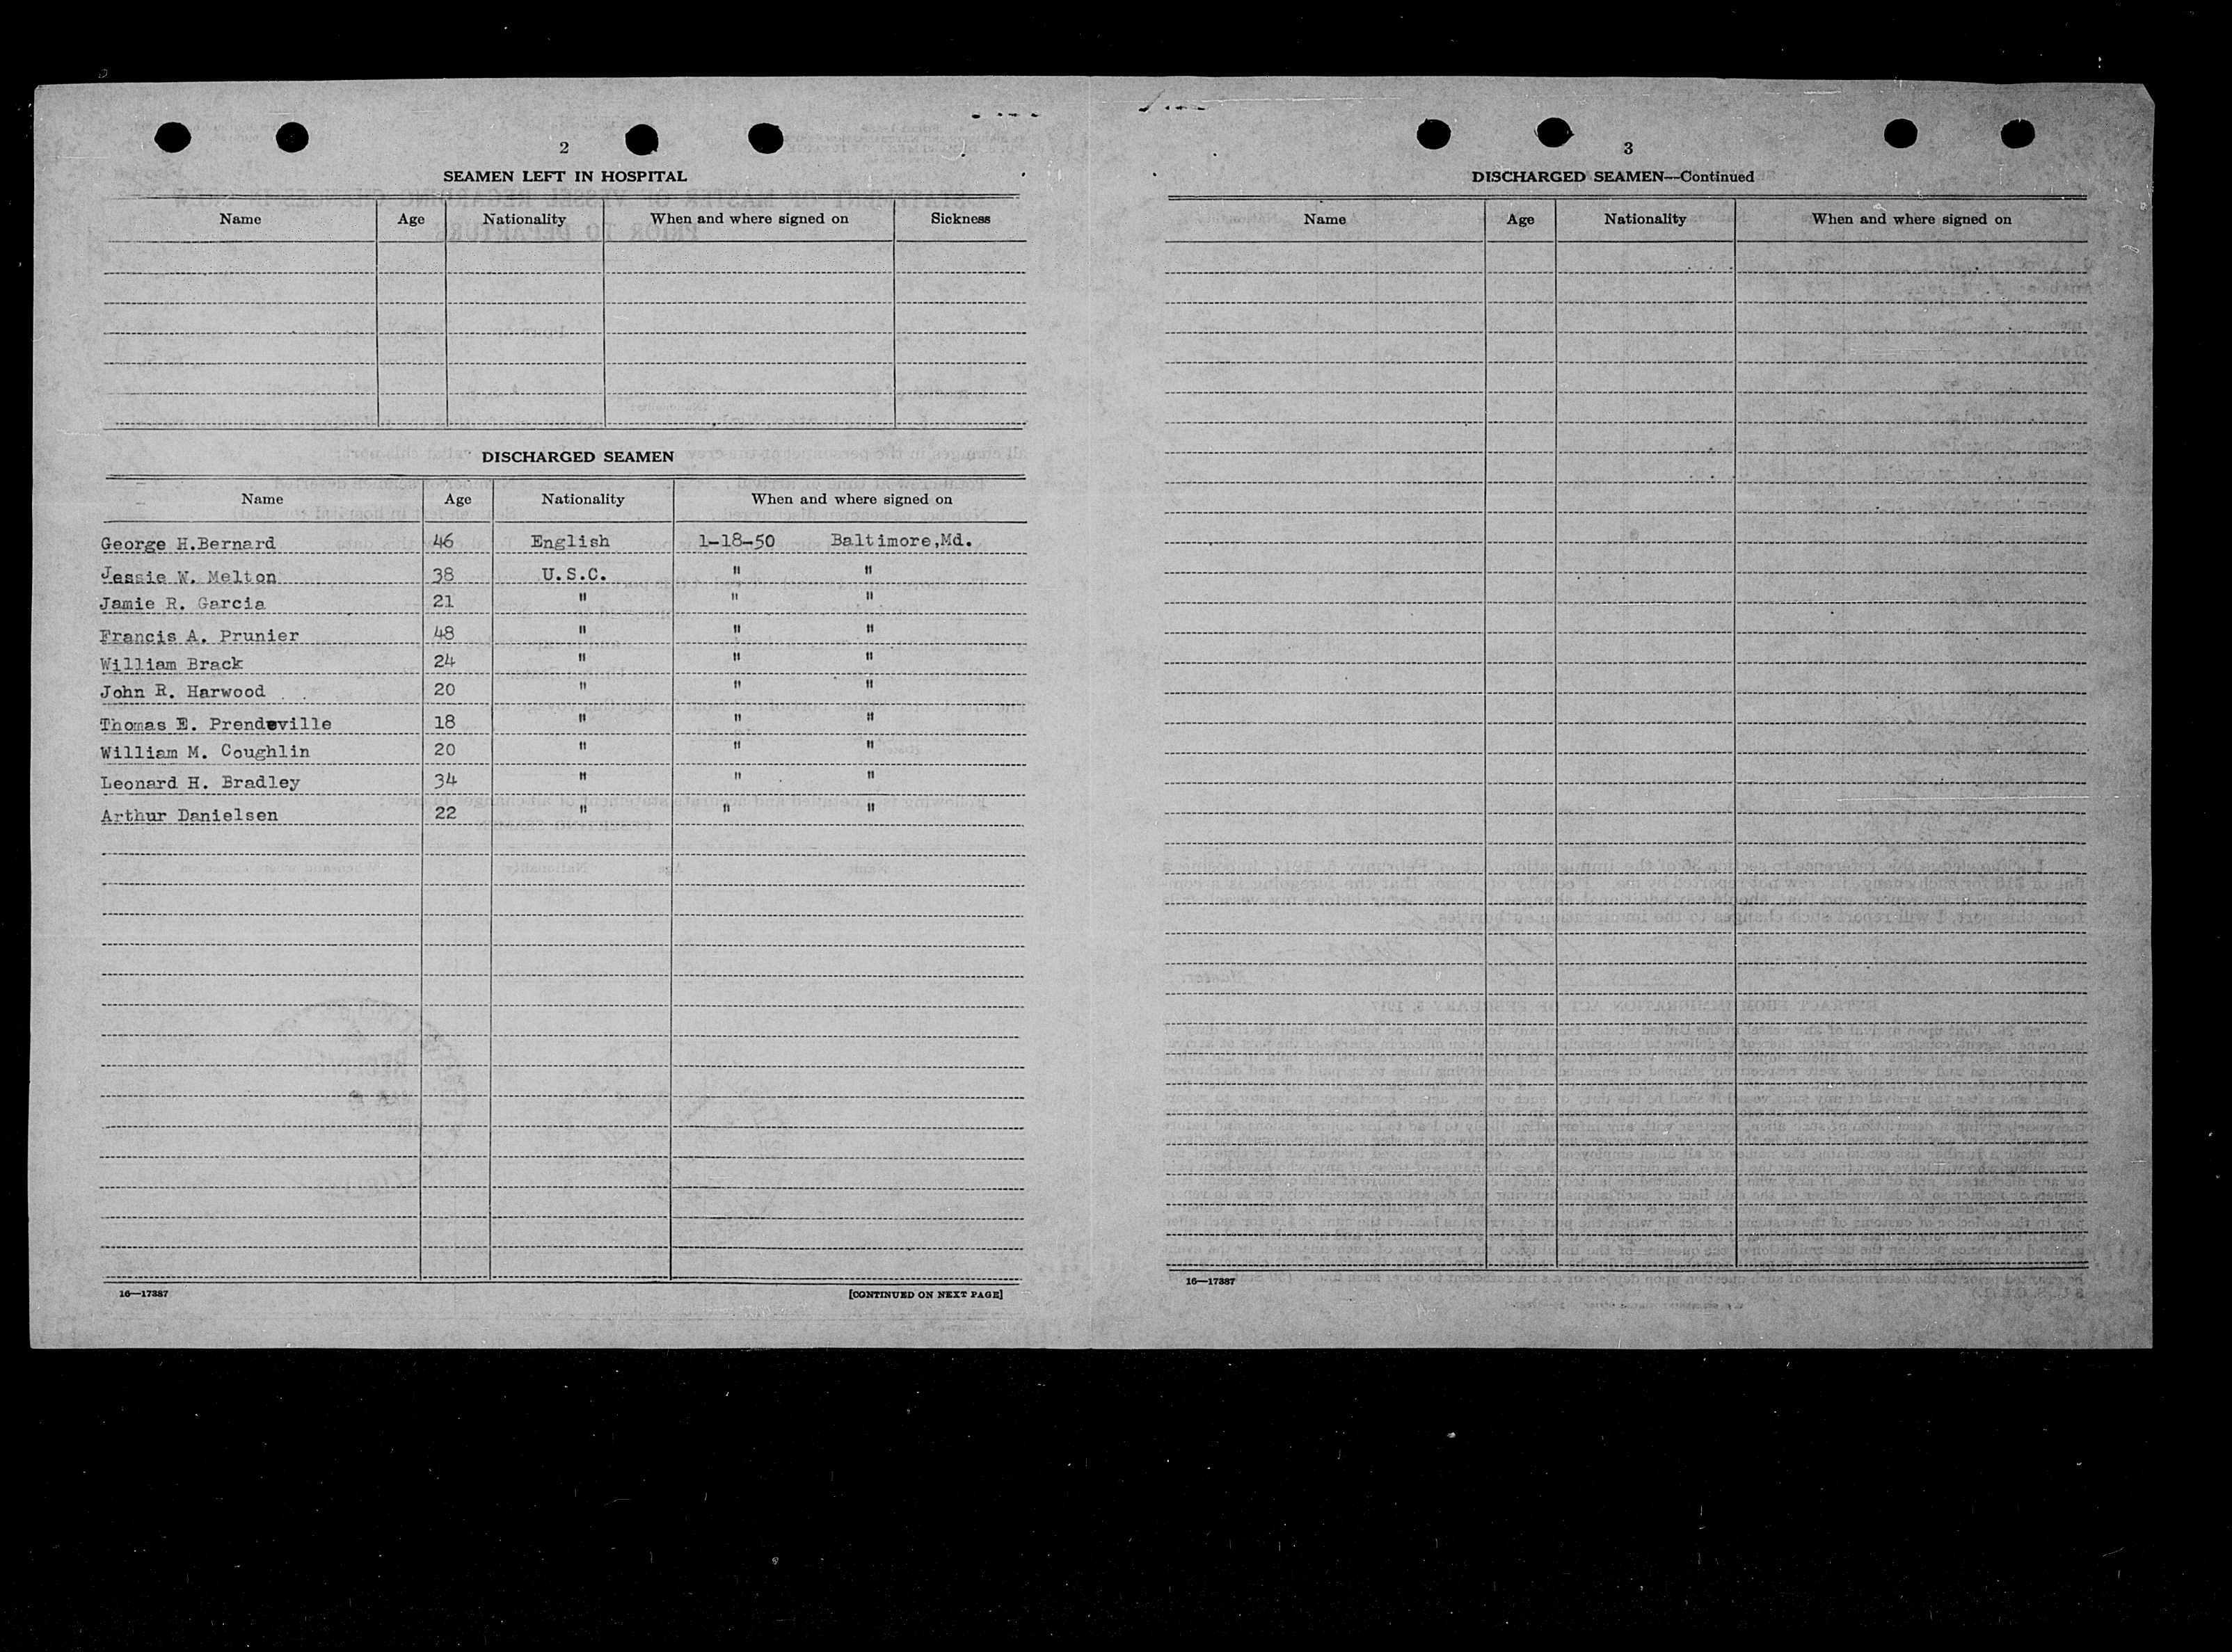 2
SEAMEN LEFT IN HOSPITAL
Name Age Nationality When and where signed on Sickness
DISCHARGED SEAMEN
Name Age Nationality When and where signed on
George H.Bernard 46 English 1-18-50 Baltimore,Md.
Jessie W. Melton 38 U.S.C. " "
Jamie R. Garcia 21 " " "
Francis A. Prunier 48 " " "
William Brack 24 " " "
John R. Harwood 20 " " "
Thomas E. Prendeville 18 " " "
William M. Coughlin 20 " " "
Leonard H. Bradley 34 " " "
Arthur Danielsen 22 " " "
16—17387 [CONTINUED ON NEXT PAGE]
3
DISCHARGED SEAMEN—Continued
Name Age Nationality When and where signed on
16—17387